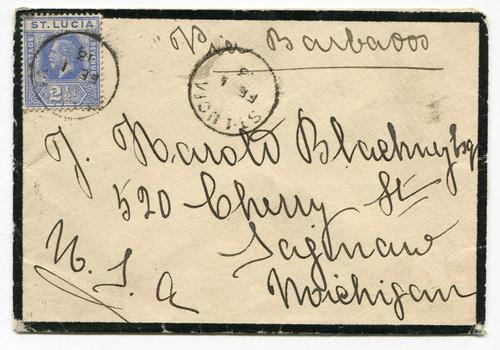 ST. LUCIA
POSTAGE
REVENUE
2½d
Via Barbados
ST. LUCIA
FE
J. Harold Blackney Esq
520 Cherry St
Saginaw
Michigan
U. S. A